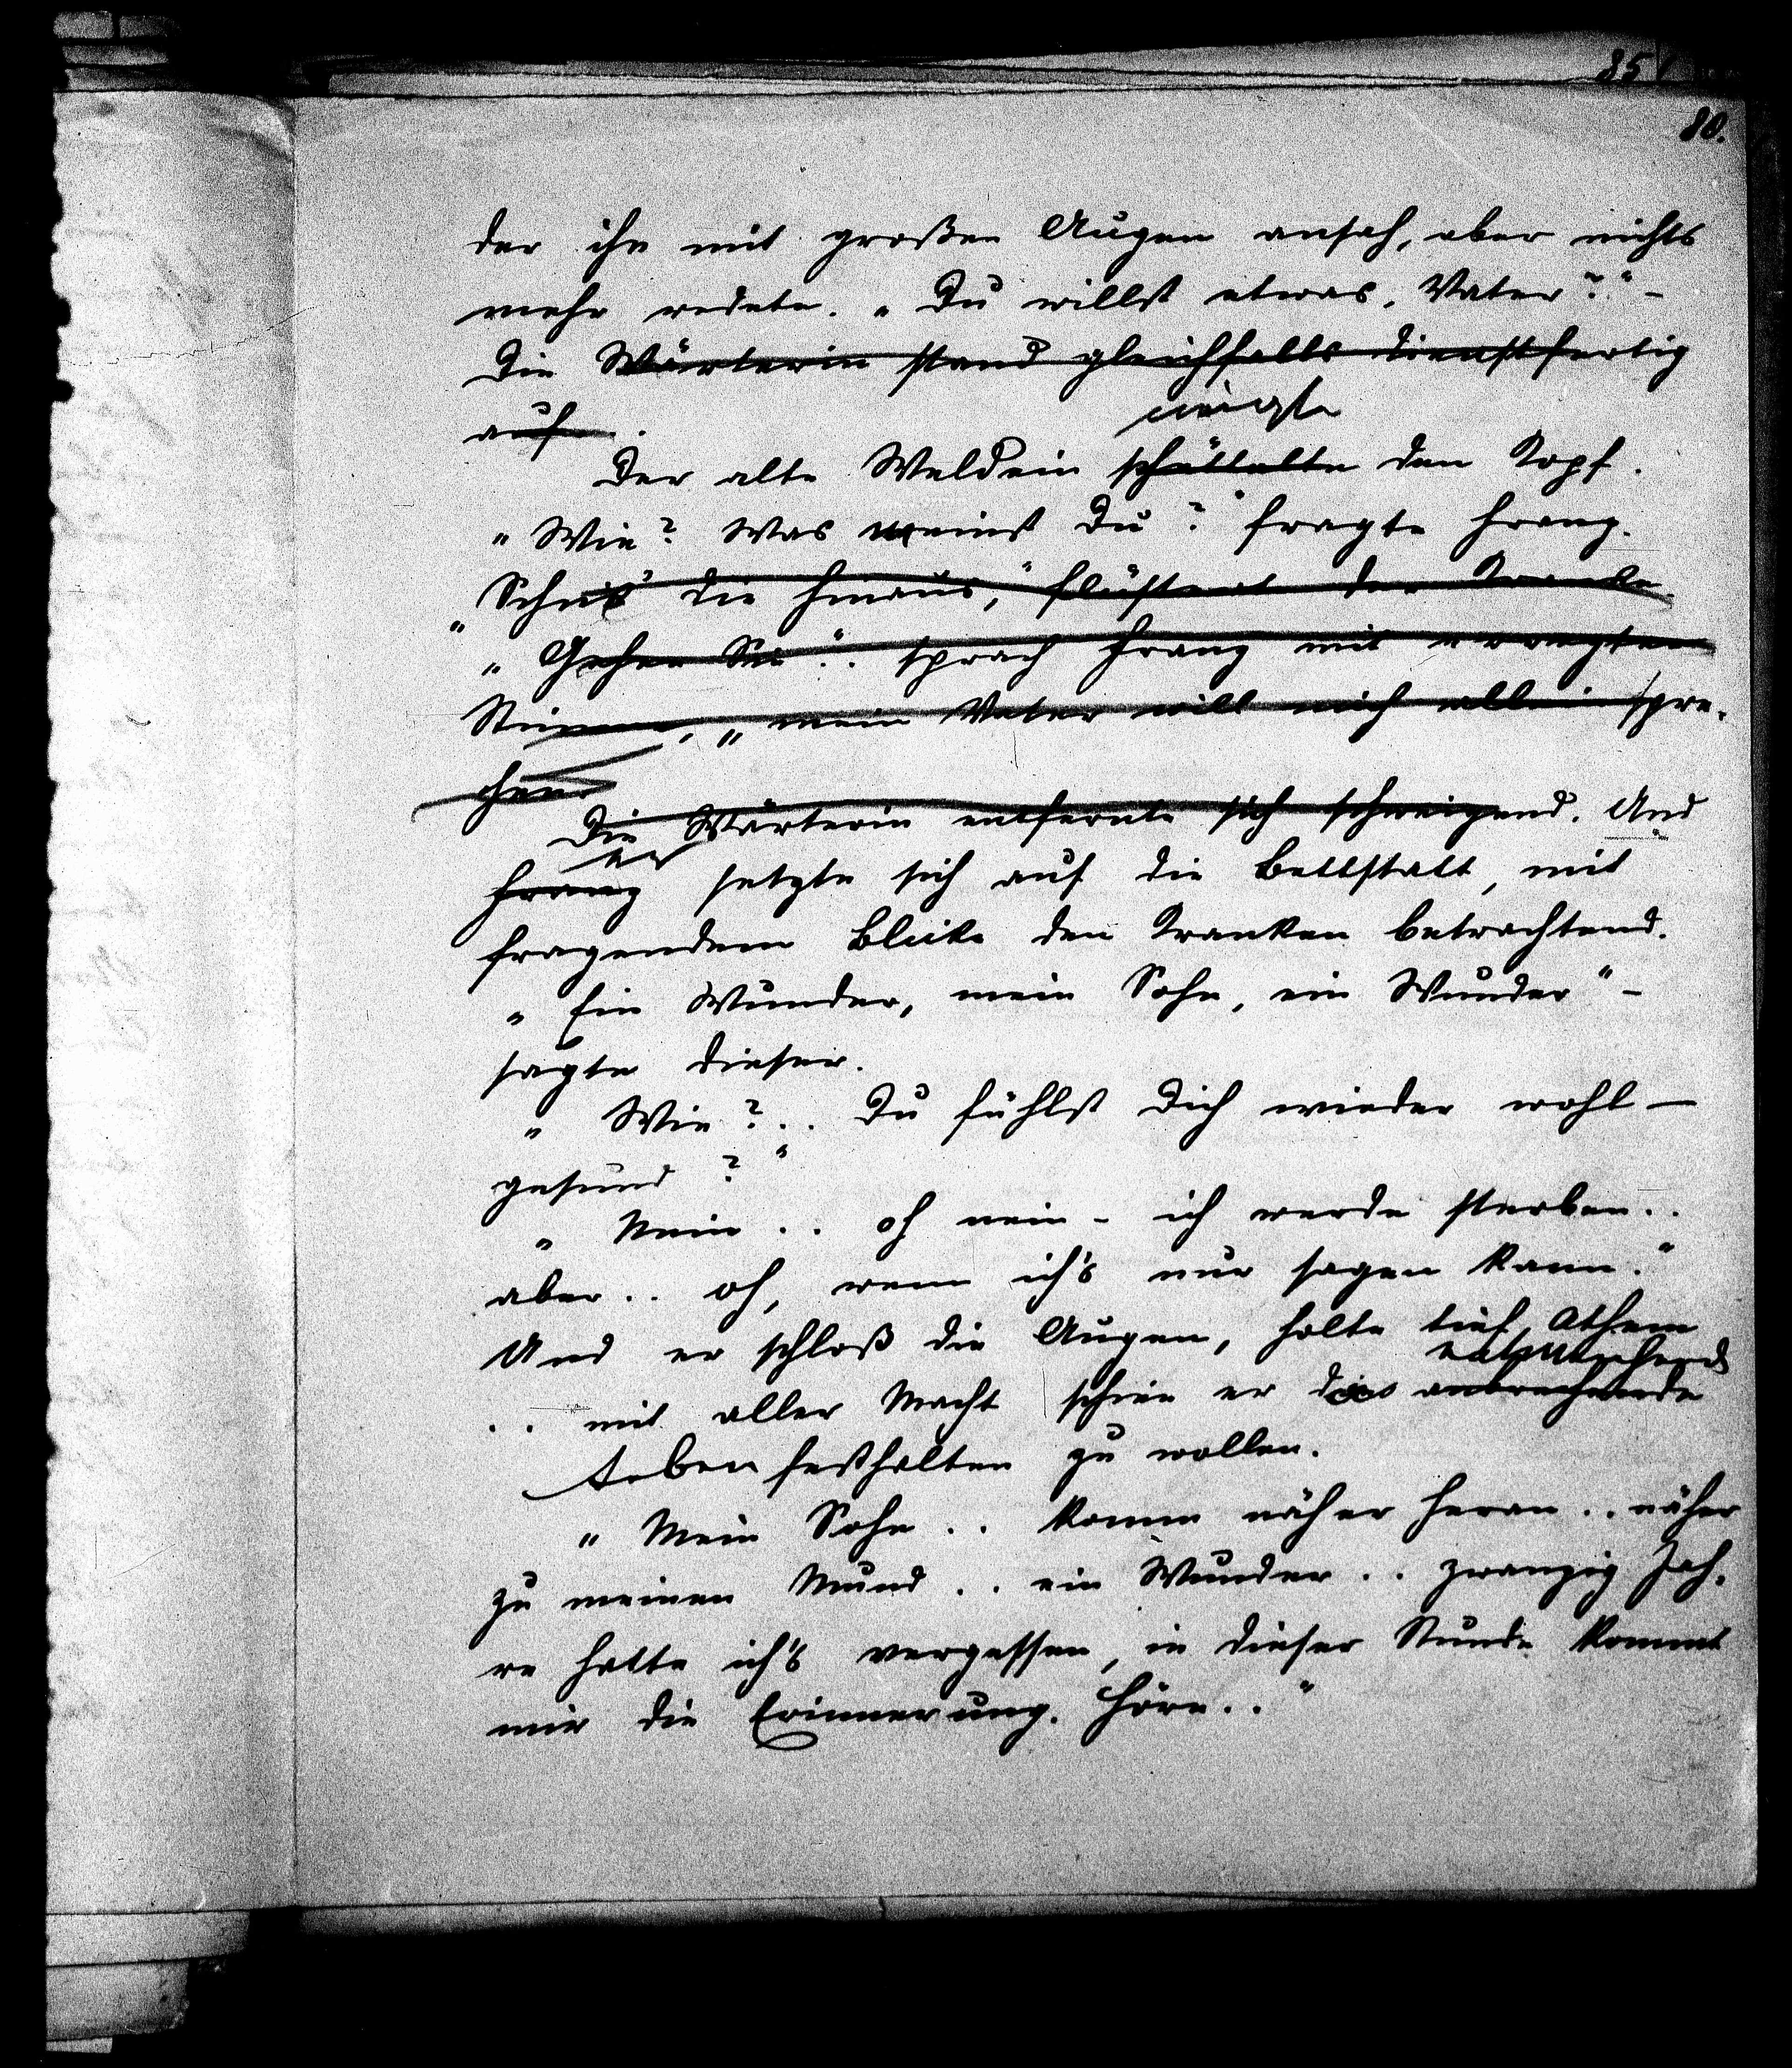 85
80.
der ihn mit großen Augen ansah, aber nichts
mehr redete. „Du willst etwas, Vater?“ –
Die Wärterin stand gleichfalls dienstfertig
auf.
neigte
Der alte Weldein schüttelte den Kopf.
„Wie? Was meinst Du?“ fragte Franz.
„Schick die hinaus,“ flüstert der Kranke.
„Gehen Sie“.. sprach Franz mit erregter
Stimme, „mein Vater will mich allein spre-
chen
Die Wärterin entfernte sich schweigend. Und
er
Franz setzte sich auf die Bettstatt, mit
fragendem Blicke den Kranken betrachtend.
„Ein Wunder, mein Sohn, ein Wunder“ –
sagte dieser.
„Wie?.. Du fühlst Dich wieder wohl –
gesund?“
„Nein .. oh nein – ich werde sterben..
aber.. oh, wenn ich's nur sagen kann.“
Und er schloß die Augen, holte tief Athem
entweichende
.. mit aller Macht schien er das anbrechende
Leben festhalten zu wollen.
„Mein Sohn .. komm näher heran .. näher
zu meinen Mund .. ein Wunder .. zwanzig Jah-
re hatte ich's vergessen, in dieser Stunde kommt
mir die Erinnerung. Höre..“